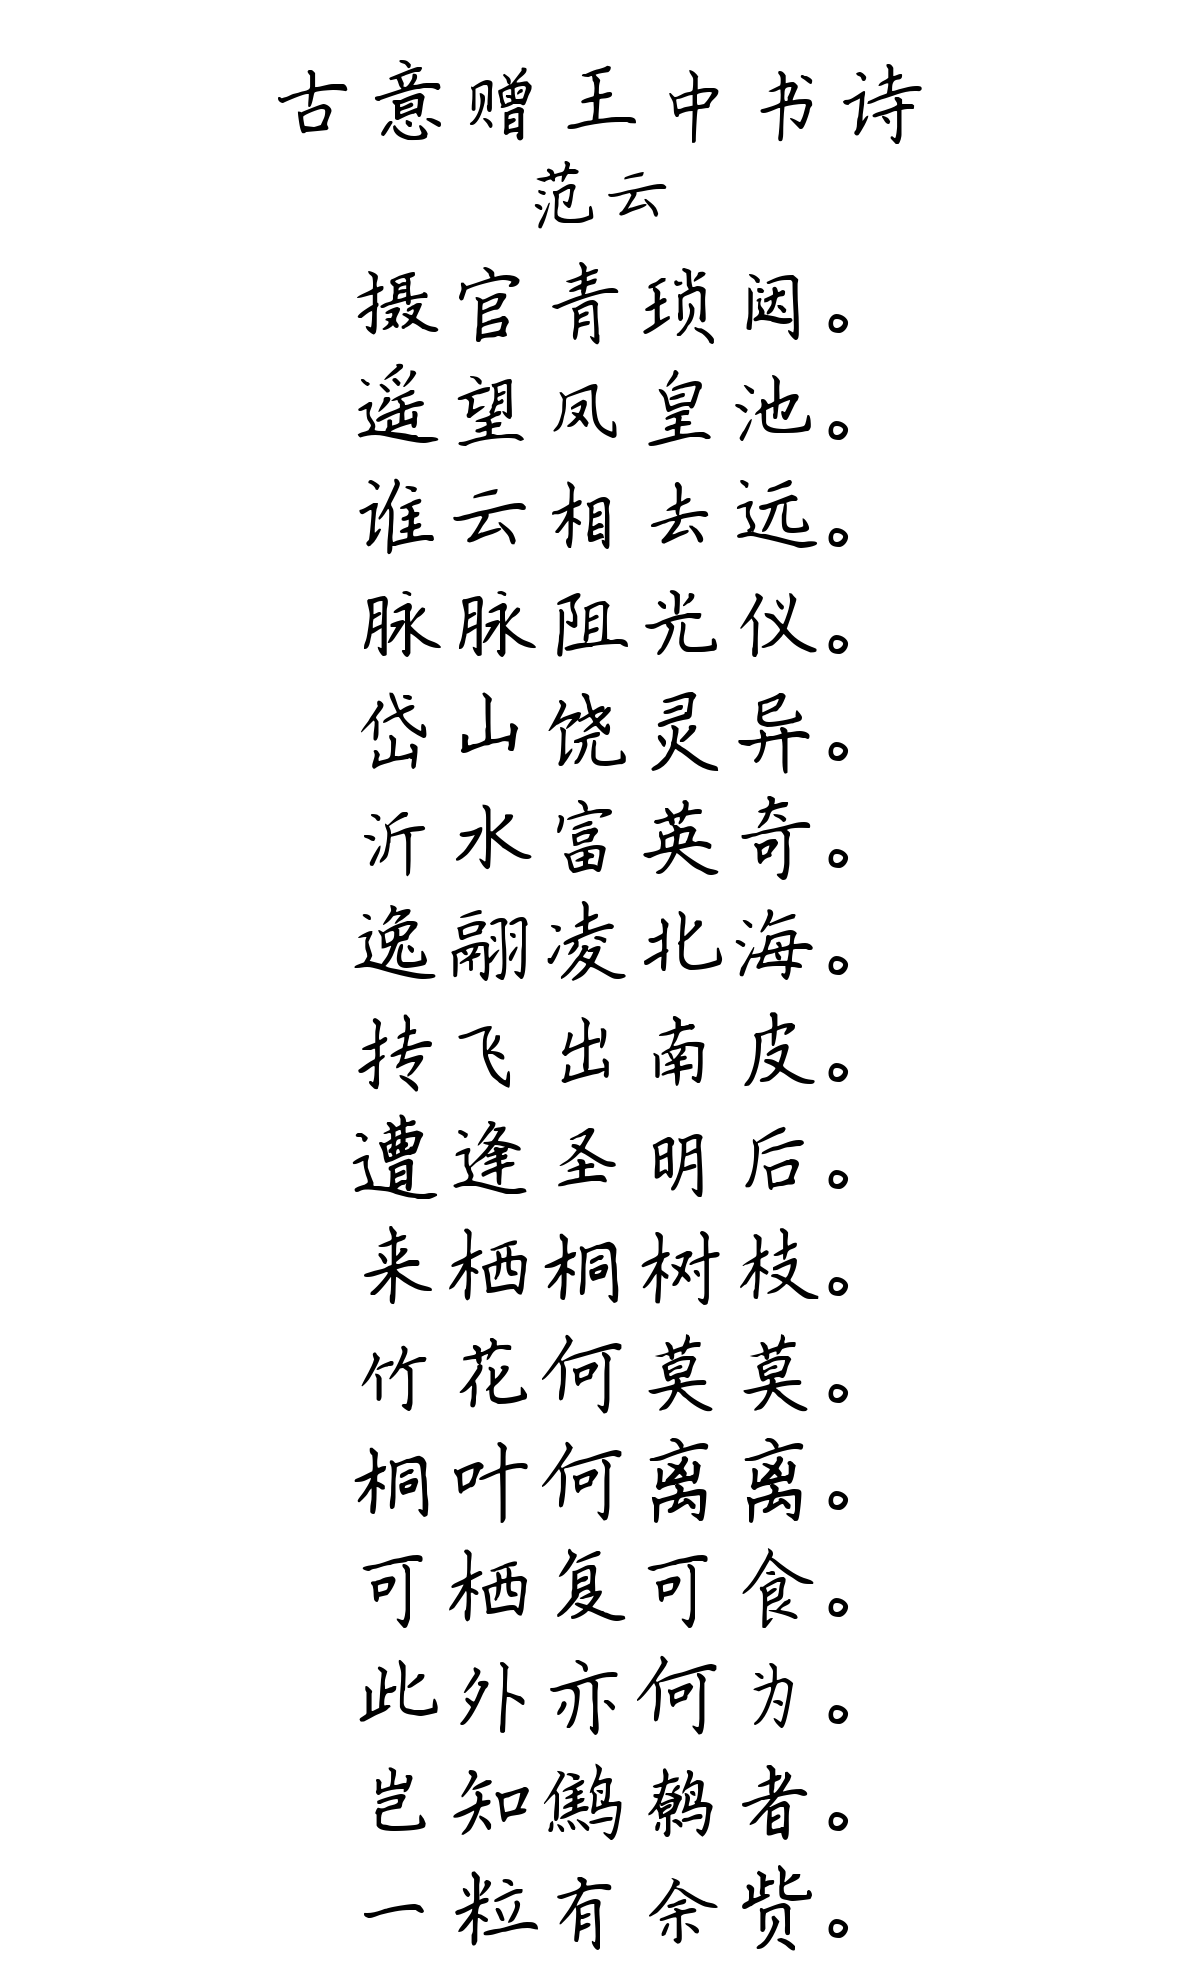 古意赠王中书诗
范云
摄官青琐闼。
遥望凤皇池。
谁云相去远。
脉脉阻光仪。
岱山饶灵异。
沂水富英奇。
逸翮凌北海。
抟飞出南皮。
遭逢圣明后。
来栖桐树枝。
竹花何莫莫。
桐叶何离离。
可栖复可食。
此外亦何为。
岂知鹪鹩者。
一粒有余赀。